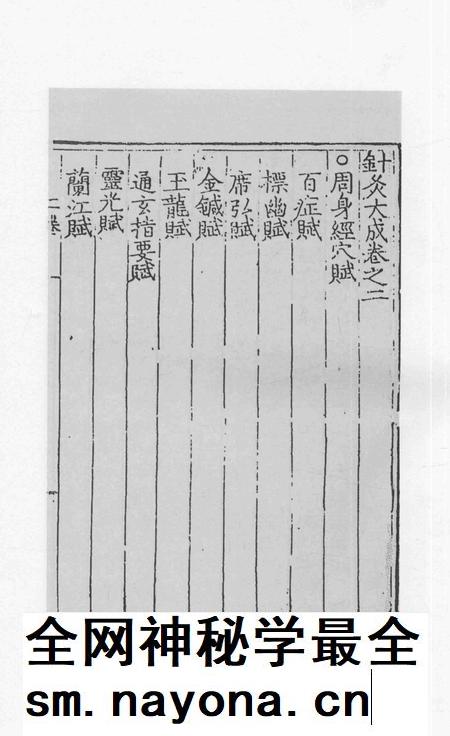 針灸大成卷之二
○周身經穴賦
百症賦
標幽賦
席弘賦
金鍼賦
玉龍賦
通玄指要賦
靈光賦
蘭江賦
二卷
全网神秘学最全
sm.nayona.cn